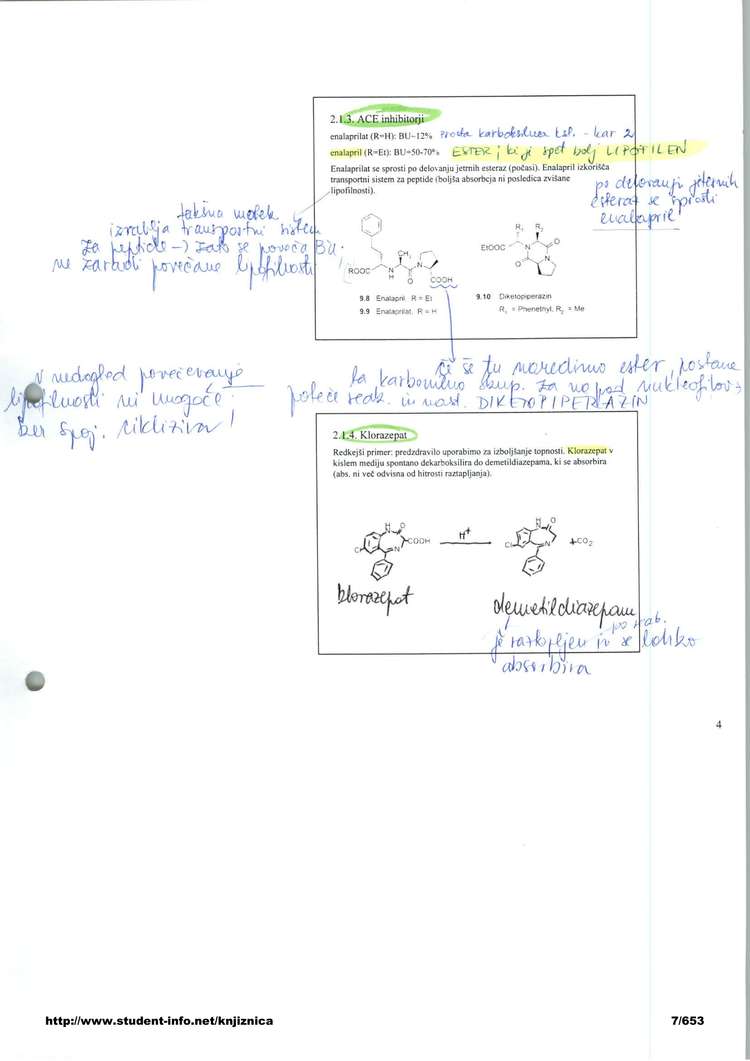 2.1.3. ACE inhibitorji
enalaprilat (R=H): BU~12% Prosta karboksilna ksl. - kar 2
enalapril (R=Et): BU=50-70% ESTER, ki je spet bolj LIPOFILEN
Enalaprilat se sprosti po delovanju jetrnih esteraz (počasi). Enalapril izkorišča
transportni sistem za peptide (boljša absorbcja ni posledica zvišane
lipofilnosti).
po delovanju jetrnih
esteraz se sprosti
enalapril
takšna molek
izrablja transportni sistem
za peptide -> zato se poveča BU.
ne zaradi povečane lipofilnosti
ROOC
N
H
CH3
O
N
COOH
EtOOC
R1
R2
N
O
N
O
9.8 Enalapril R = Et
9.9 Enalaprilat, R = H
9.10 Diketopiperazin
R1 = Phenethyl, R2 = Me
v nedogled povečevanje
lipofilnosti ni mogoče.
ker spoj. ciklizira!
če se tu naredimo ester, postane
ta karbonilno skup. za napad nukleofilov →
poteče reak. in nast. DIKETOPIPERAZIN
2.1.4. Klorazepat
Redkejši primer: predzdravilo uporabimo za izboljšanje topnosti. Klorazepat v
kislem mediju spontano dekarboksilira do demetildiazepama, ki se absorbira
(abs. ni več odvisna od hitrosti raztapljanja).
H
N
O
COOH
Cl
N
H+
H
N
O
Cl
N
+CO2
klorazepat
demetildiazepam
je raztopljen in se lahko
absorbira
4
http://www.student-info.net/knjiznica
7/653